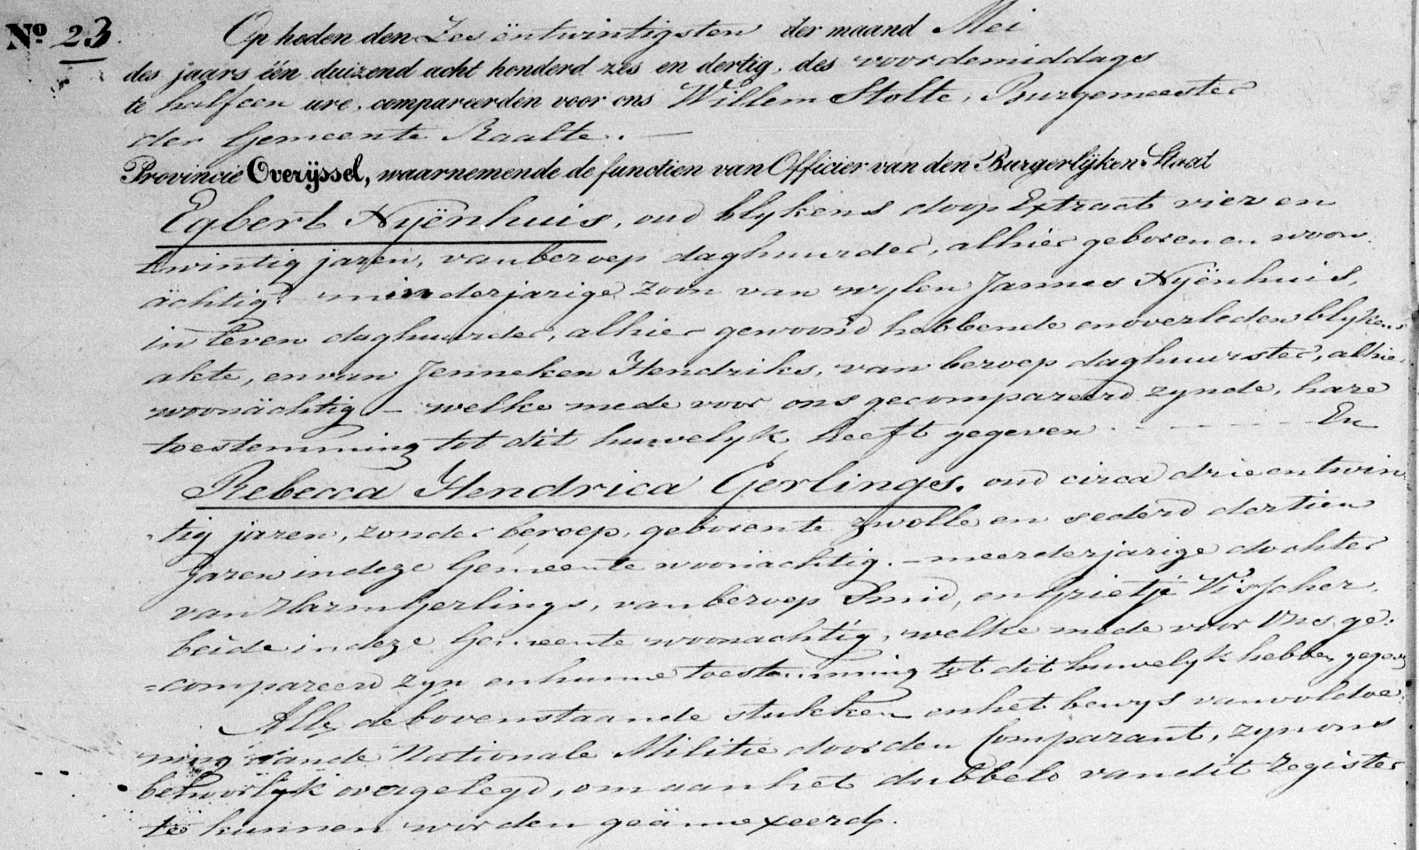 No. 23. Op heden den Zesëntwintigsten der maand Mei
des jaars één duizend acht honderd zes en dertig, des voordemiddags
te half een ure, compareerden voor ons Willem Stolte, Burgemeester
der Gemeente Raalte. —
Provincie Overijssel, waarnemende de functien van Officier van den Burgerlijken Staat
Egbert Nyënhuis, oud blykens doop Extract vier en
twintig jaren, van beroep daghuurder, alhier geboren en woon
ächtig. minderjarige zoon van wylen Jannes Nyënhuis,
in leven daghuurder, alhier gewoond hebbende en overleden blykens
akte, en van Jenneken Hendriks, van beroep daghuurster, alhier
woonächtig – welke mede voor ons gecompareerd zynde, hare
toestemming tot dit huwelyk heeft gegeven - - - - - En
Rebecca Hendrica Gerlings, oud circa drie en twin
tig jaren, zonder beroep, geboren te Zwolle en sederd dertien
Jaren in deze Gemeente woonächtig. – meerderjarige dochter
van Harm Gerlings, van beroep Smid, en Grietje Visscher,
beide in deze Gemeente woonachtig, welke mede voor Ons ge-
=compareerd zyn en hunne toestemming tot dit huwelyk hebben gegeven
Alle de bovenstaande stukken en het bewys van voldoe
ning aan de Nationale Militie door den Comparant, zyn ons
behoorlyk overgelegd, om aan het dubbeld van dit register
te kunnen worden geännexeerd.